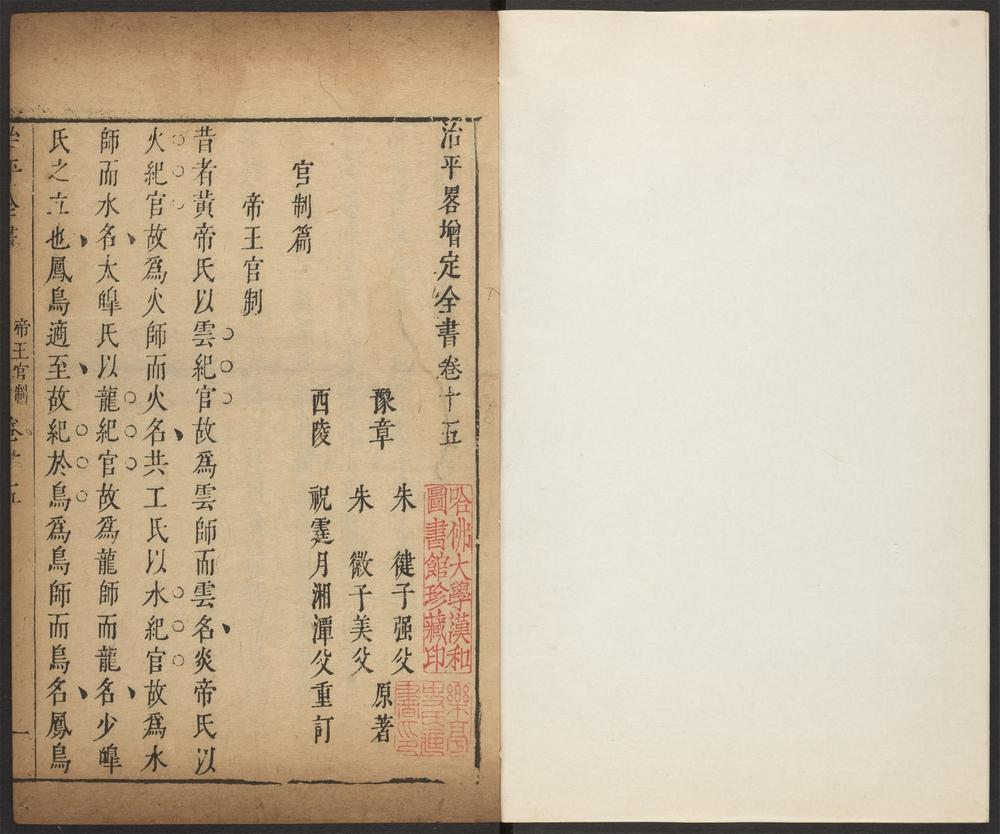 治平畧增定全書卷十五
哈佛大學漢和
圖書館珍藏印
豫章
朱 健子强父
朱 徽子美父
原著
西陵
祝霆月湘潭父重訂
官制篇
帝王官制
昔者黃帝氏以雲紀官故爲雲師而雲名炎帝氏以
火紀官故爲火師而火名共工氏以水紀官故爲水
師而水名太皥氏以龍紀官故爲龍師而龍名少皥
氏之立也鳳鳥適至故紀於鳥爲鳥師而鳥名鳳鳥
帝王官制 卷十五 一